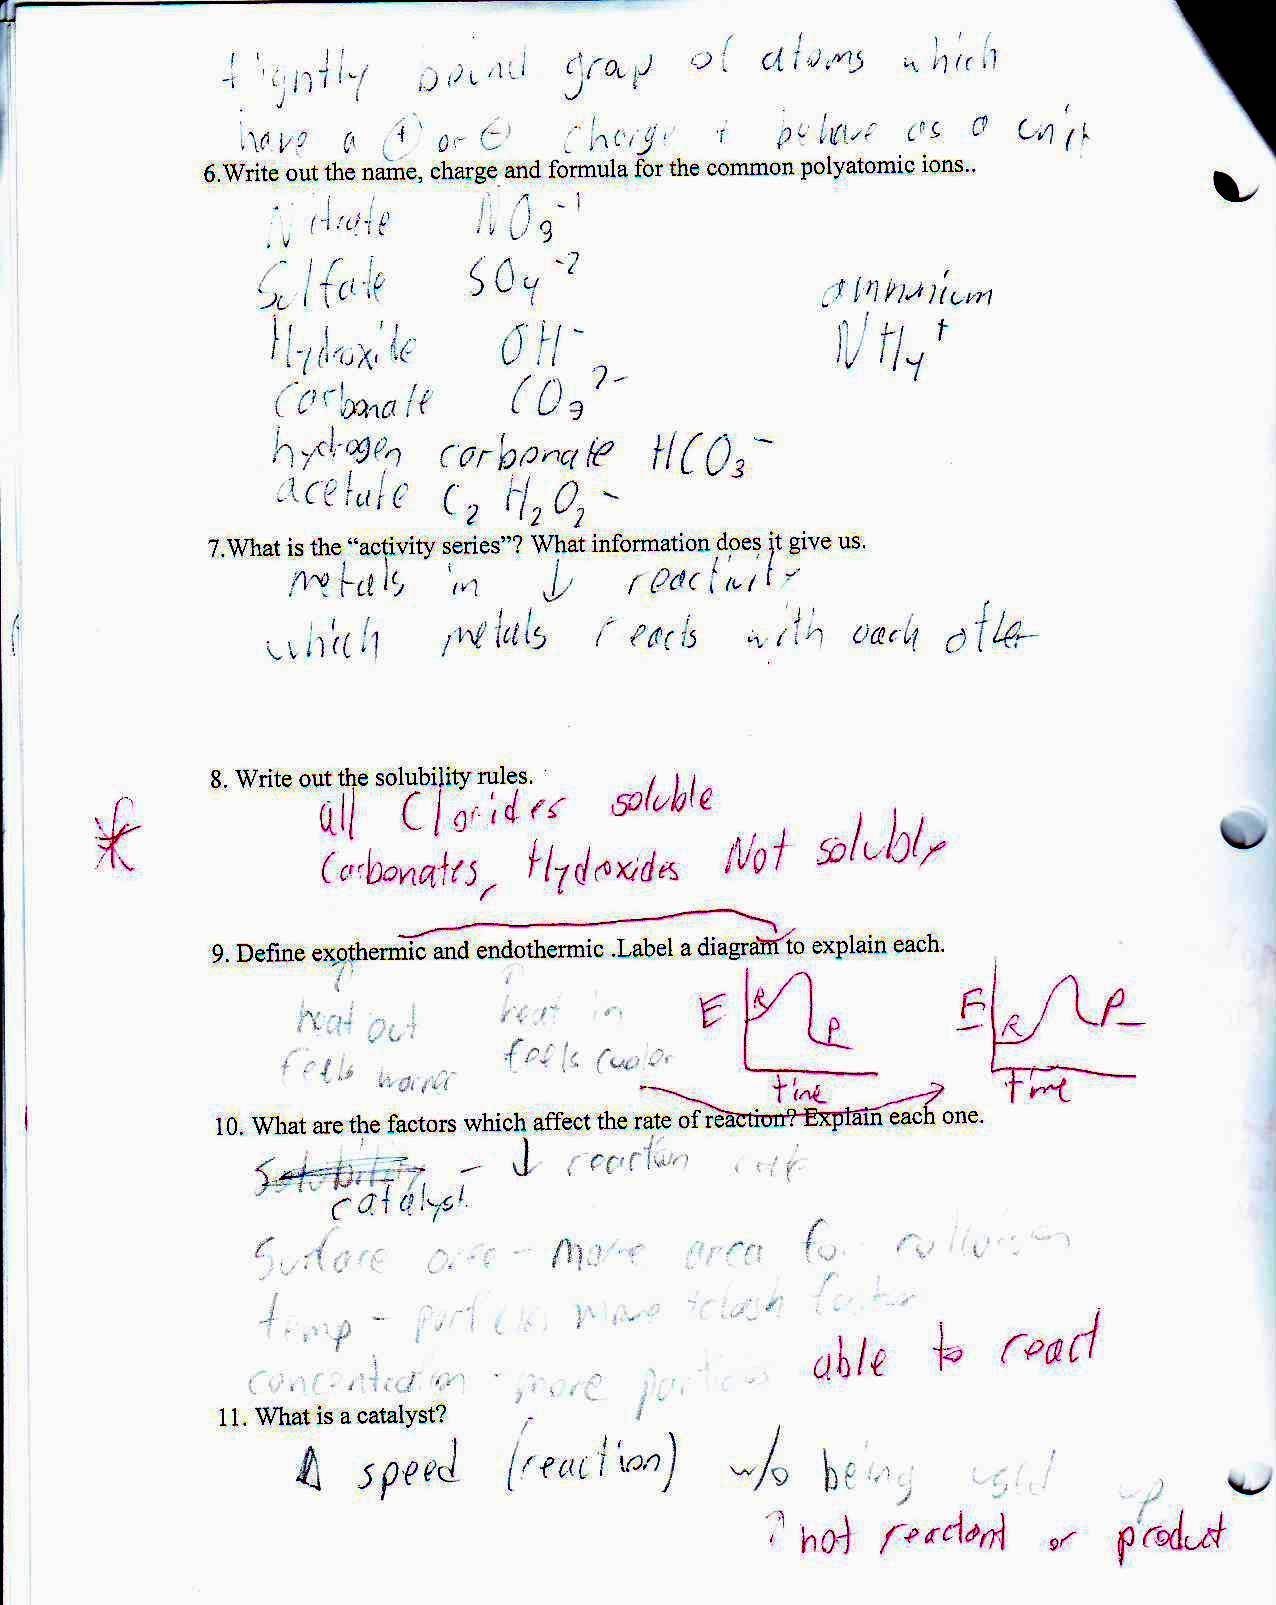 tightly bound group of atoms which
have a ⊕ or ⊖ charge + behave as a unit
6.Write out the name, charge and formula for the common polyatomic ions..
Nitrate NO3-1
Sulfate SO4-2
ammonium
Hydroxide OH-
NH4+
Carbonate CO3 2-
hydrogen carbonate HCO3-
acetate C2 H2 O2-
7.What is the “activity series”? What information does it give us.
metals in ↓ reactivity
which metals reacts with each other
8. Write out the solubility rules.
all Clorides soluble
Carbonates, Hydroxides Not soluble
9. Define exothermic and endothermic .Label a diagram to explain each.
heat out heat in E R P E R P
feels warmer feels cooler
time time
10. What are the factors which affect the rate of reaction? Explain each one.
Solubility - ↓ reaction rate
catalyst
Surface area - more area for collision
temp - particles move + clash faster
concentration - more particles able to react
11. What is a catalyst?
Δ speed (reaction) w/o being used up
↑ not reactant or product